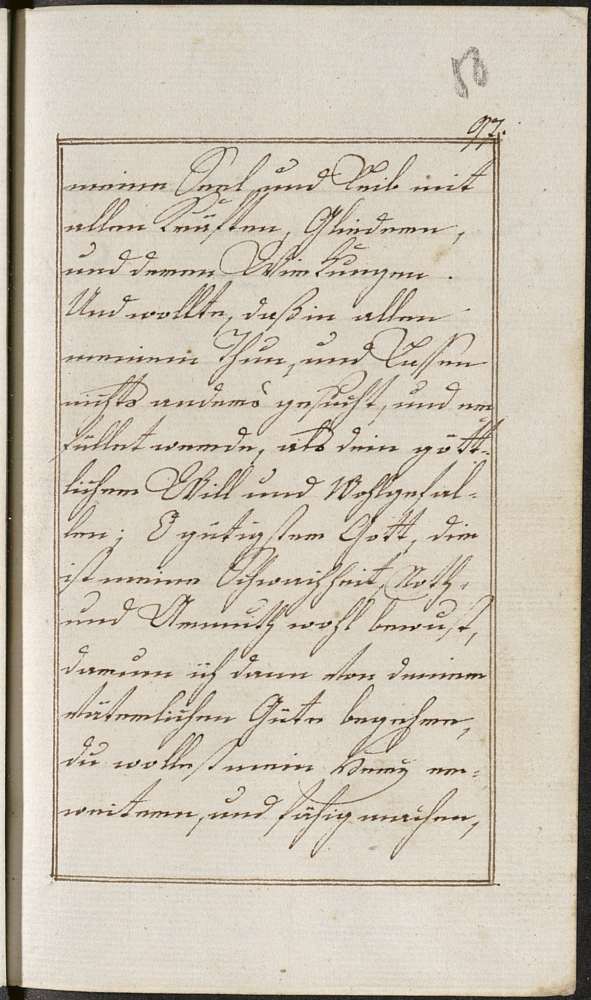 97.
meine Seel und Leib mit
allen Kräften, Gliedern,
und deren Wirkungen.
Und wollte, daß in allen
meinem Thun, und Lassen
nichts anders gesucht, und er
füllet werde, als dein gött-
licher Will und Wohlgefal-
len; O gütigster Gott, dir
ist meine Schwachheit, Noth,
und Armuth wohl bewust,
darum ich dann von deiner
väterlichen Güte begehre,
du wollest mein Herz er-
weitern, und fähig machen,